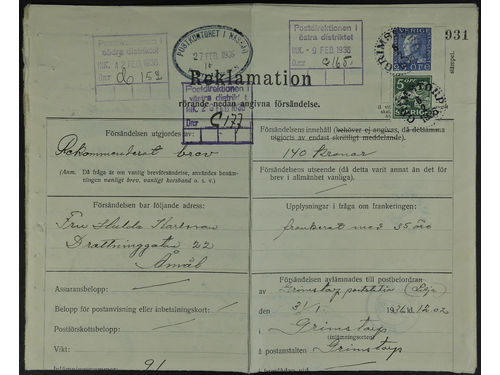 Postdirektionen i
södra distriktet
Postdirektionen i
östra distriktet
INK. - 9 FEB 1936
931
SVERIGE
25 ÖRE
5
ÖRE
SVERIGE
27 FEB. 1936
stämpel.
Reklamation
rörande nedan angivna försändelse.
Postdirektionen i
västra distriktet
C 177
Försändelsen utgjordes av:
Rekommenderat brev
(Anm. Då fråga är om vanlig brevförsändelse, användes benämningen
Försändelsens innehåll (behöver ej angivas, då detsamma
utgjorts av endast skriftligt meddelande).
140 Kronor
Försändelsens utseende (då detta varit annat än det för
brev i allmänhet vanliga).
Försändelsen bar följande adress:
Fru Hulda Karlsson
Drottninggatan 22
Åmål
Upplysningar i fråga om frankeringen:
frankerat med 35 öre
Assuransbelopp:
Belopp för postanvisning eller inbetalningskort:
Postförskottsbelopp:
Vikt:
Försändelsen avlämnades till postbefordran
av Grimstorp
den 31/1 1936 kl. 12.02
i Grimstorp
(inlämningsorten)
å postanstalten Grimstorp